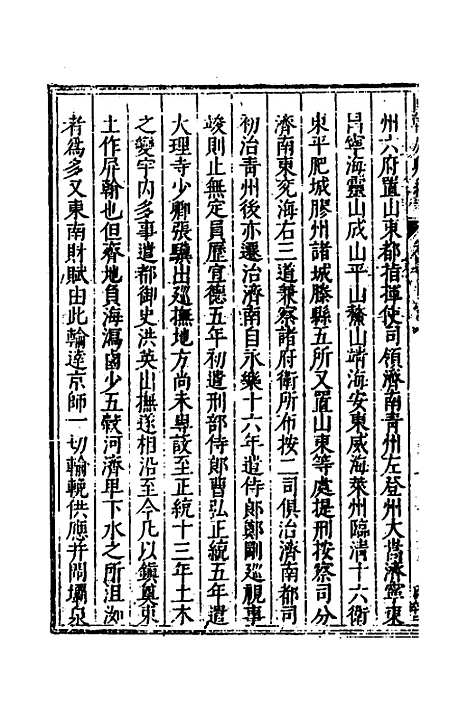 州六府置山東都指揮使司領濟南青州左登州大嵩濟寧東
昌寧海靈山成山平山鰲山靖海安東威海萊州臨清十六衛
東平肥城膠州諸城滕縣五所又置山東等處提刑按察司分
濟南東兖海右三道兼察諸府衛所布按二司俱治濟南都司
初治青州後亦遷治濟南自永樂十六年遣侍郎鄭剛巡視事
峻則止無定員歷宣德五年初遣刑部侍郎曹弘正統五年遣
大理寺少卿張驥出廵撫地方尚未專設至正統十三年土木
之變宇内多事遣都御史洪英山撫遂相沿至今凡以鎮奠東
土作屏翰也但齊地負海潟鹵少五穀河濟卑下水之所沮汝
者爲多又東南財賦由此輪達京師一切輸輓供應并閘壩泉